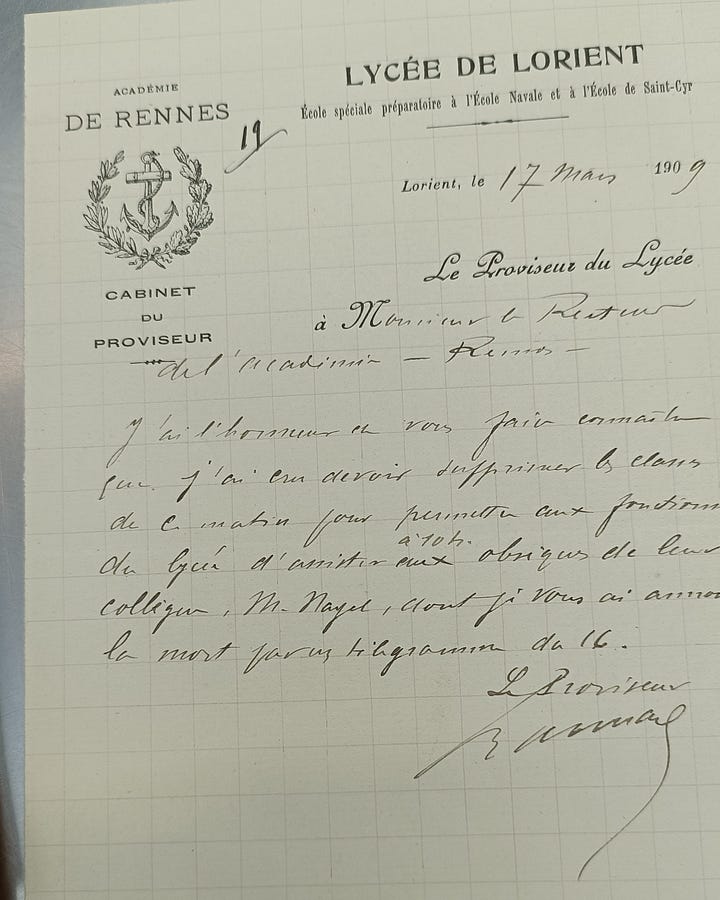 ACADÉMIE
DE RENNES
19
LYCÉE DE LORIENT
École spéciale préparatoire à l'École Navale et à l'École de Saint-Cyr
Lorient, le 17 Mars 1909
CABINET
DU
PROVISEUR
Le Proviseur du Lycée
à Monsieur le Recteur
de l'académie — Rennes —
J'ai l'honneur de vous faire connaître
que j'ai cru devoir supprimer les classes
de ce matin pour permettre aux fonctionn
du lycée d'assister à 10 h. aux obsèques de leur
collègue, M. Nayel, dont je vous ai annon
la mort par un télégramme du 16.
Le Proviseur